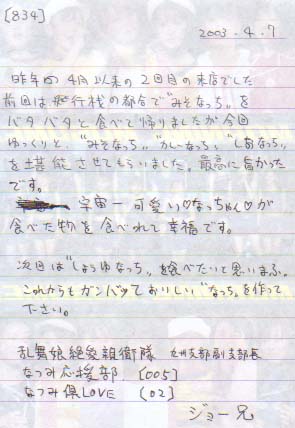 [834]
2003.4.7
昨年の4月以来の2回目の来店でした
前回は飛行機の都合で"みそなっち"を
バタバタと食べて帰りましたが今回
ゆっくりと、"みそなっち""カレーなっち"、"しおなっち"
を堪能させてもらいました。最高に旨かった
です。
宇宙一可愛い♡なっちゃん♡が
食べた物を食べれて幸福です。
次回は"しょうゆなっち"を食べたいて思いまふ。
これからもガンバッておいしい"なっち"を作って
下さい。
乱舞娘絶叫親衛隊 九州支部副支部長
なつみ応援部 [005]
なつみ倶LOVE [02]
ジョー兄